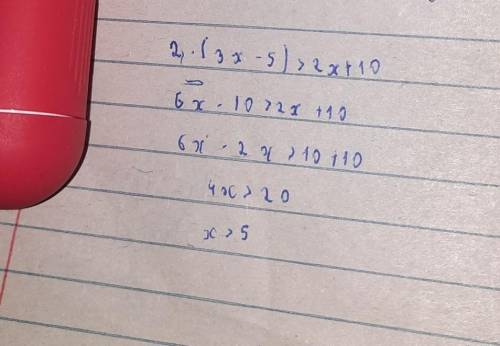 2 · (3x - 5) > 2x + 10
6x - 10 > 2x + 10
6x - 2x > 10 + 10
4x > 20
x > 5